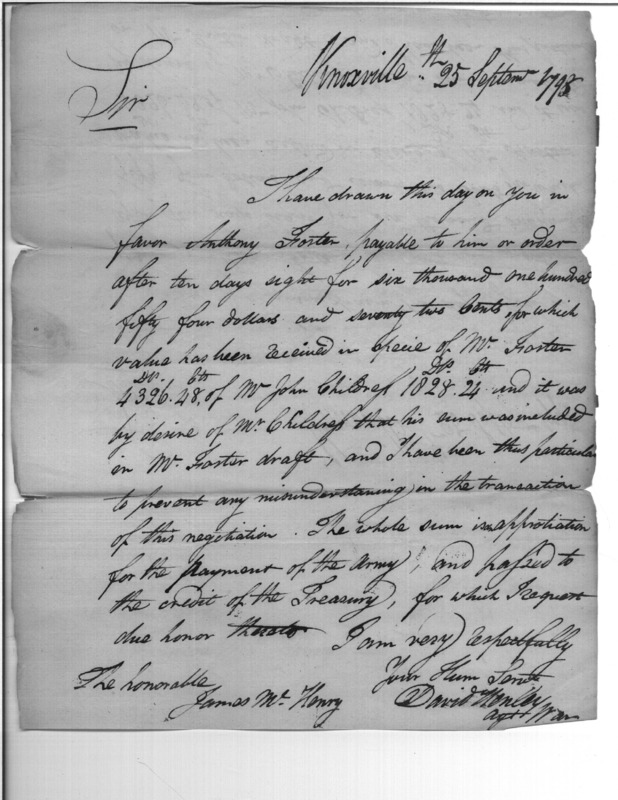 Knoxville 25th Septem 1798
Sir
I have drawn this day on you in
favor Anthony Foster, payable to him or order
after ten days sight for six thousand one hundred
fifty four dollars and seventy two Cents, for which
value has been received in specie of Mr. Foster
Ds. Cts
4326.48, of Mr John Childress 1828.24 and it was
Ds. Cts
by desire of Mr. Childress that his sum was included
in Mr. Foster draft, and I have been thus particular
to prevent any misunderstanding in the transaction
of this negotiation. The whole sum is approtiation
for the payment of the Army, and passed to
the credit of the Treasury, for which I request
due honor thereto I am very respectfully
Your Hum Servt
The honorable
James Mc Henry
David Henley
Agt War